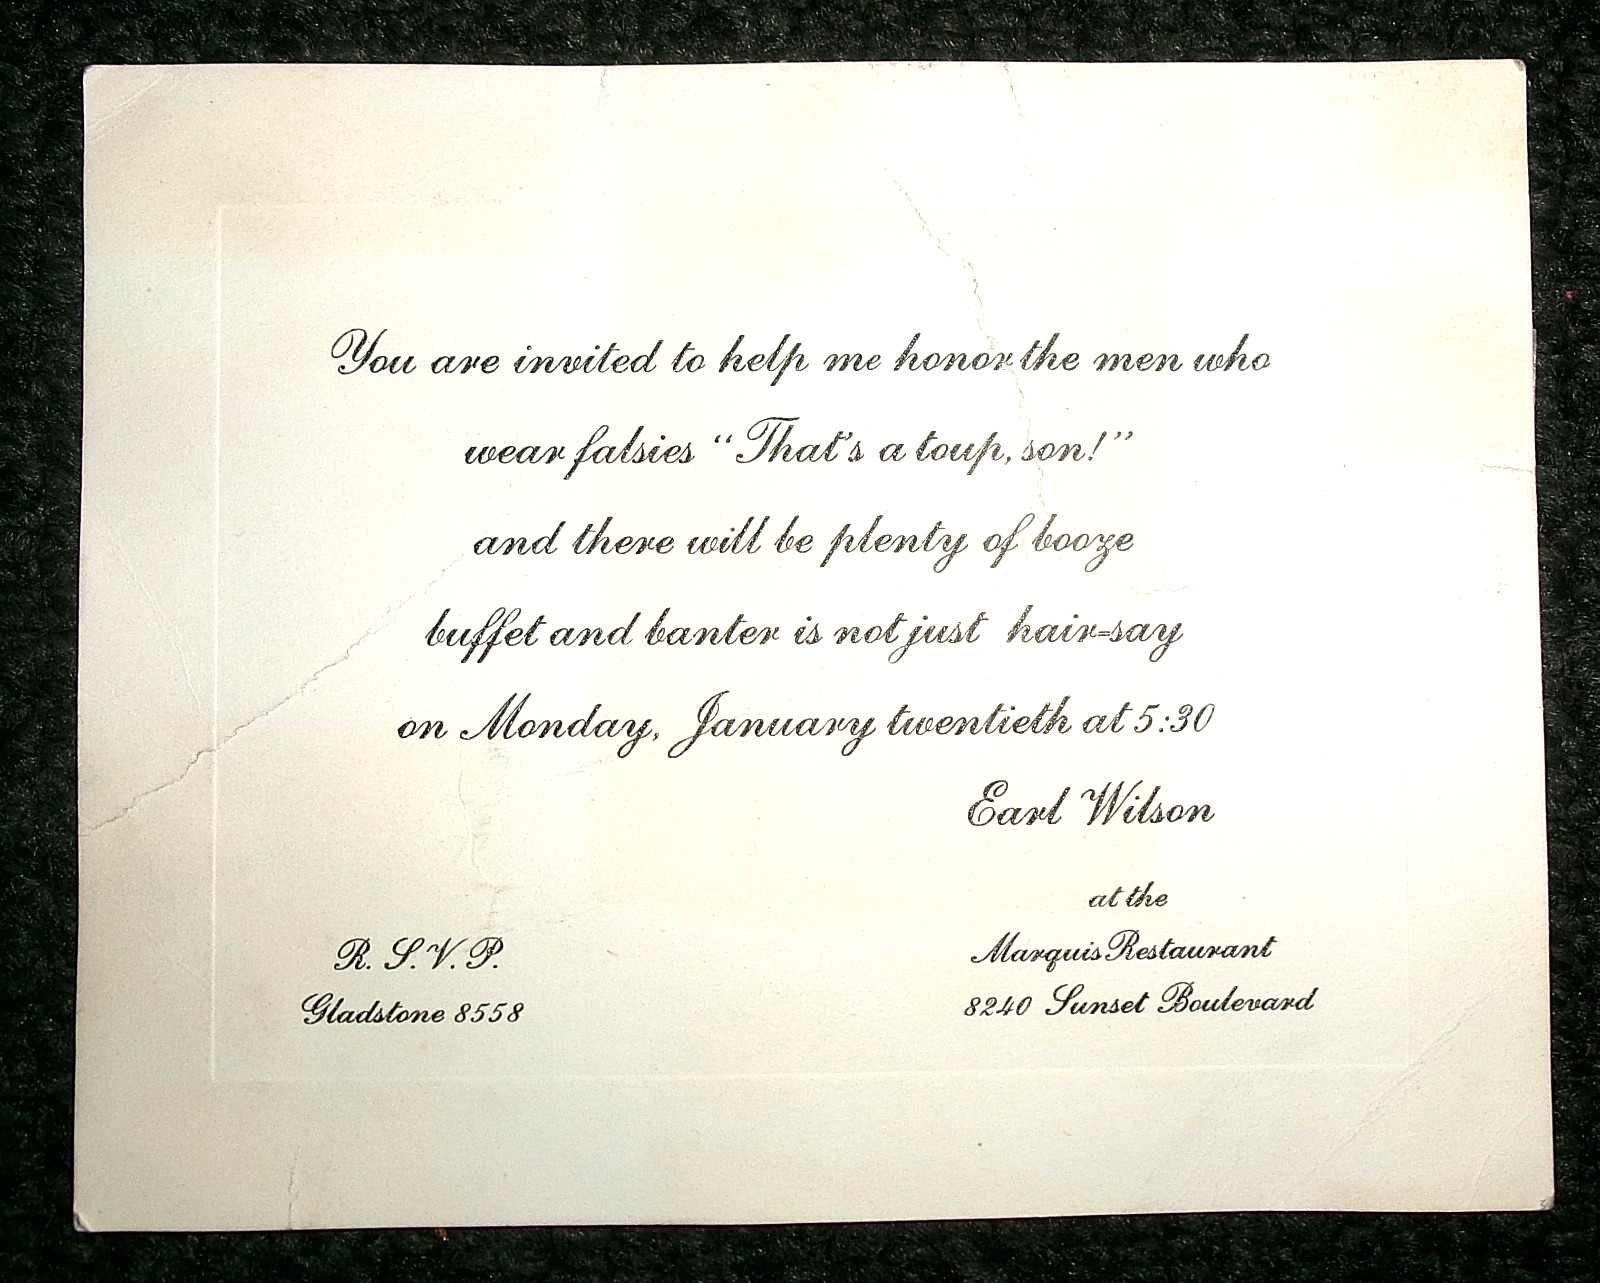 You are invited to help me honor the men who
wear falsies "That's a toup, son!"
and there will be plenty of booze
buffet and banter is not just hair-say
on Monday, January twentieth at 5:30
Earl Wilson
at the
Marquis Restaurant
8240 Sunset Boulevard
R. S. V. P.
Gladstone 8558